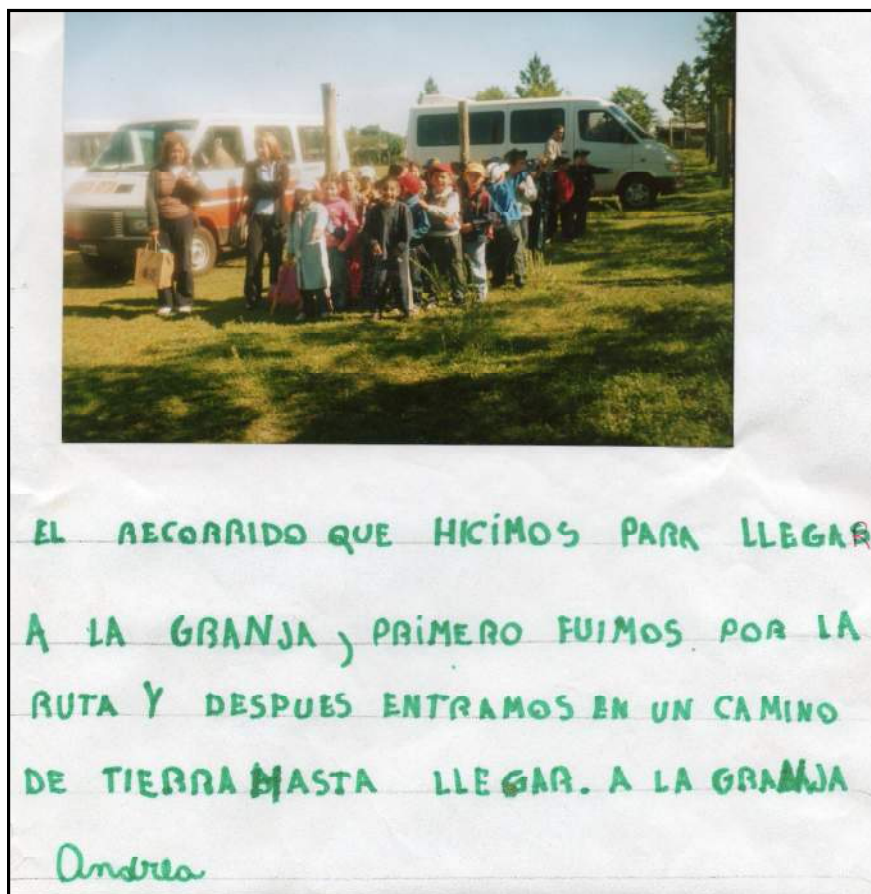 EL RECORRIDO QUE HICIMOS PARA LLEGAR
A LA GRANJA, PRIMERO FUIMOS POR LA
RUTA Y DESPUES ENTRAMOS EN UN CAMINO
DE TIERRA HASTA LLEGAR. A LA GRANJA
Andrea